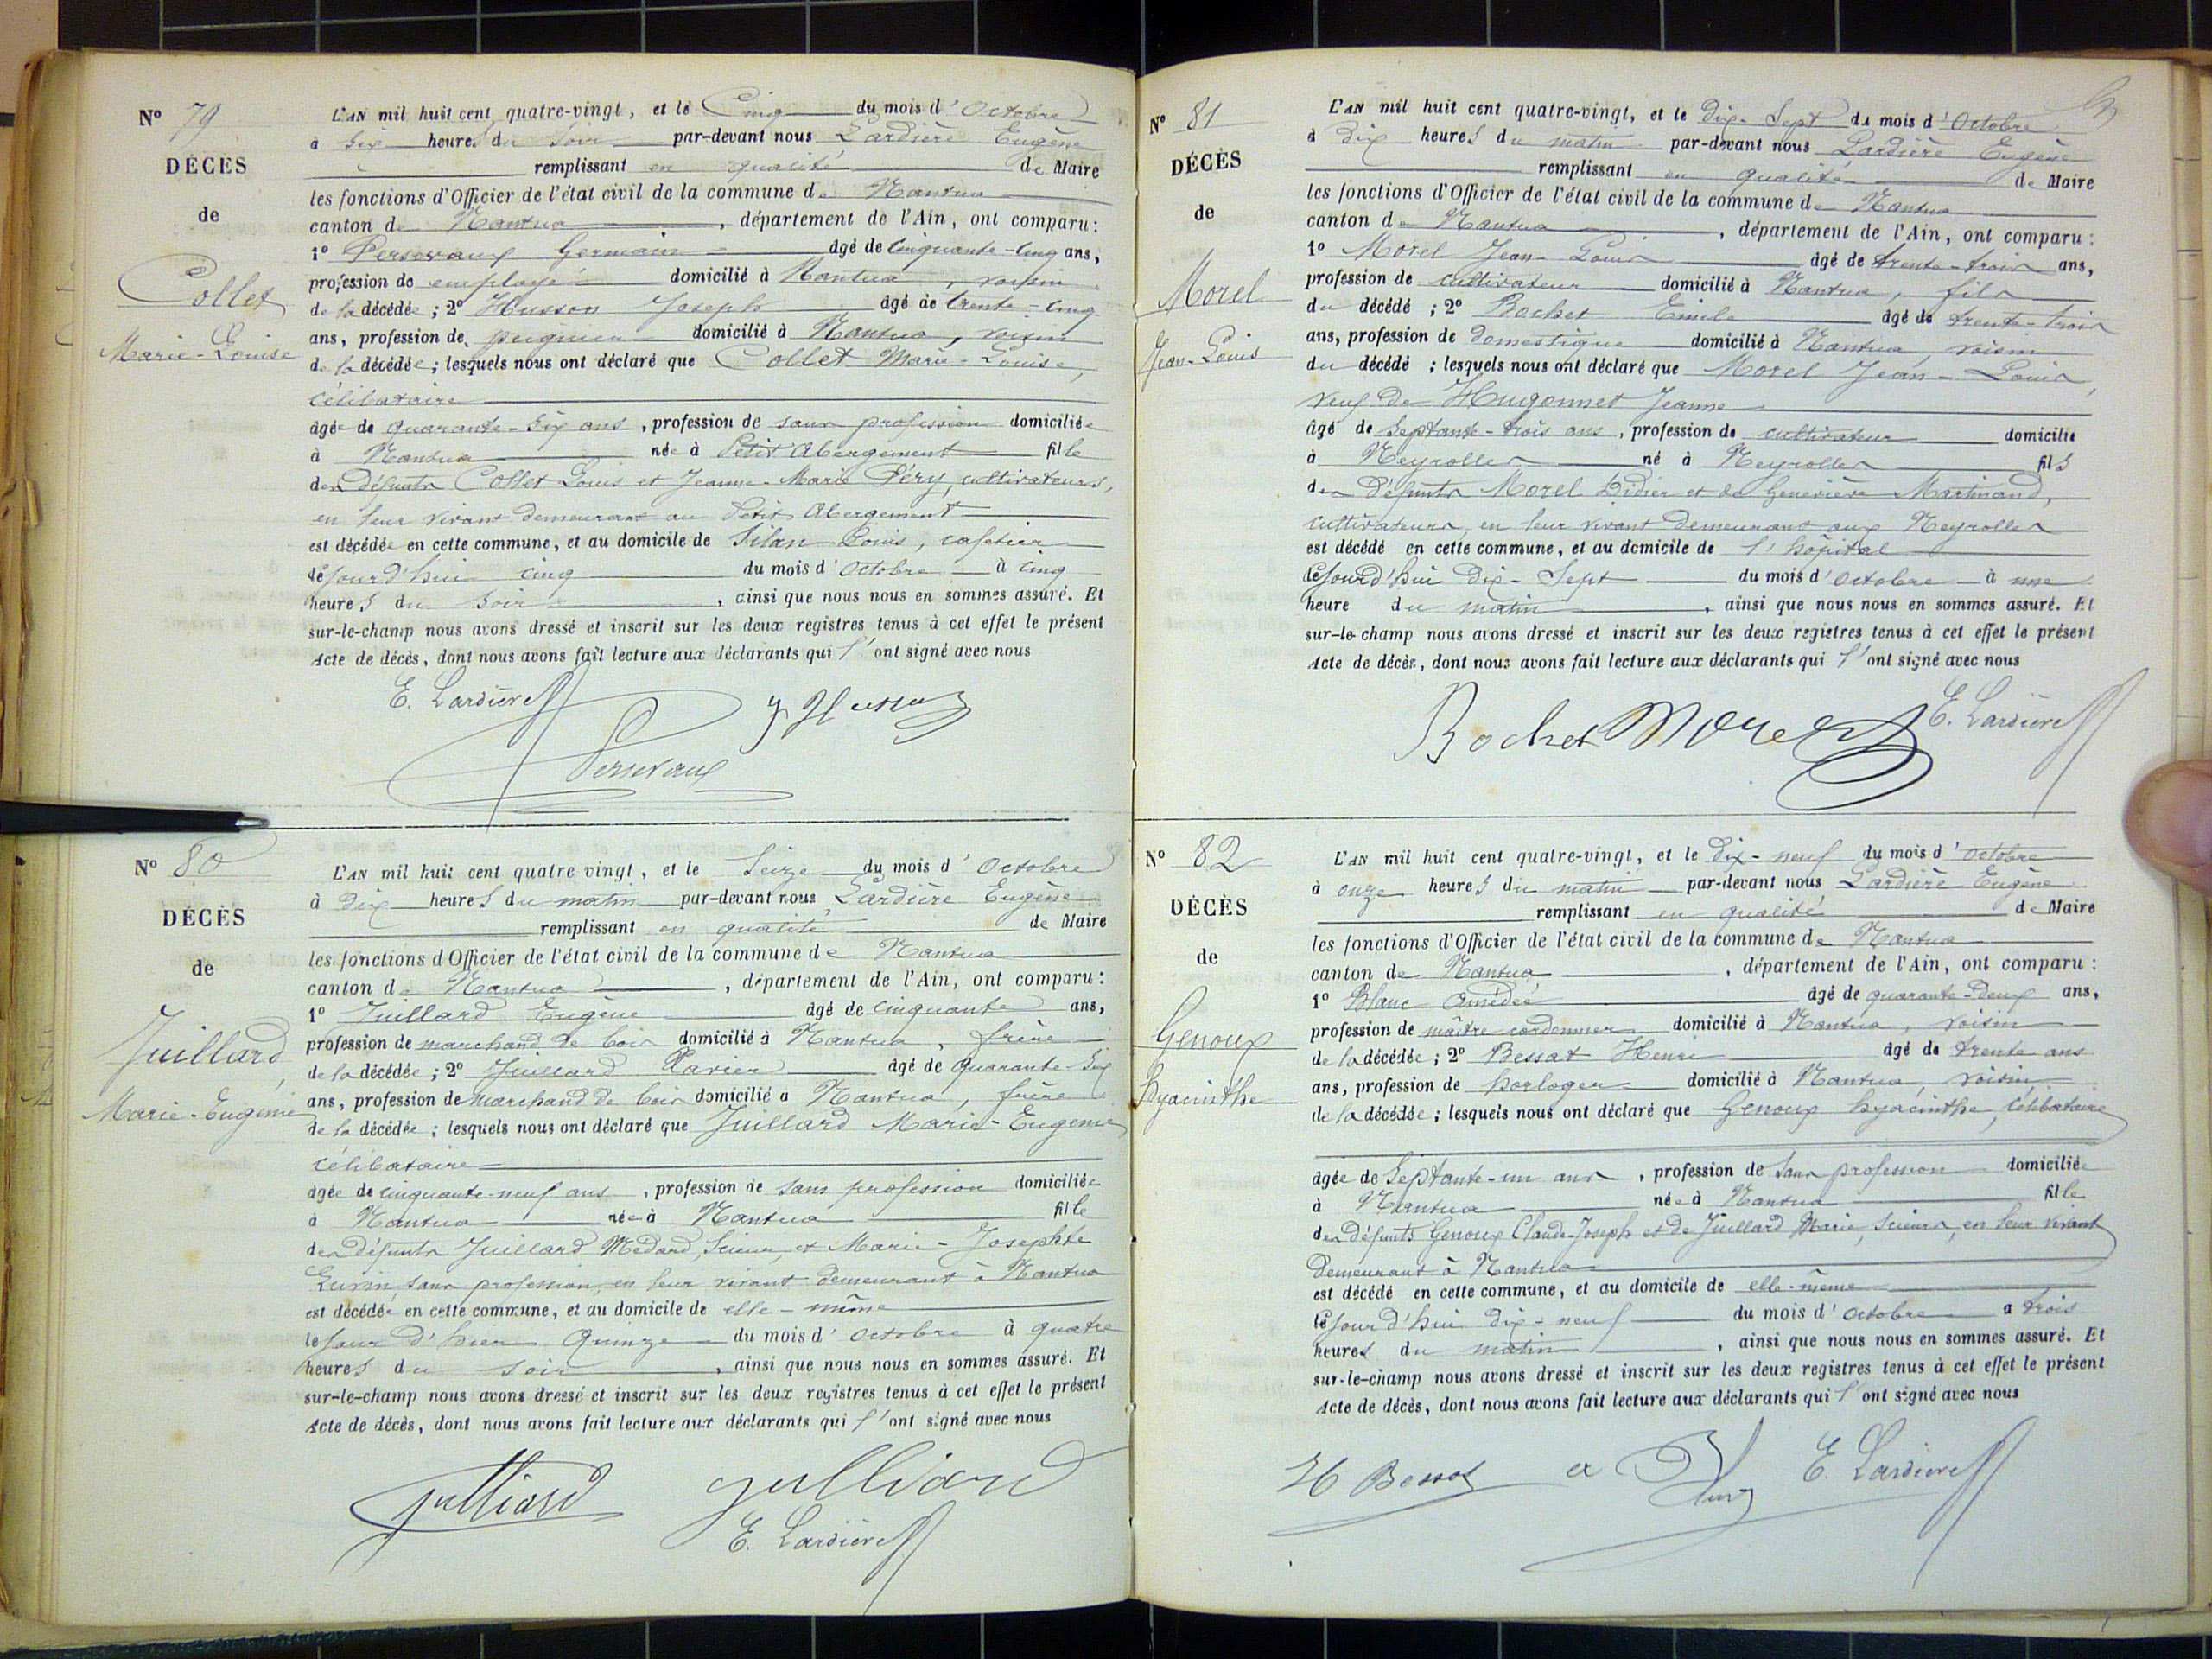 N° 79
DÉCÈS
de
Collet
Marie-Louise
L'AN mil huit cent quatre-vingt, et le Cinq du mois d'Octobre
à Six heures du Soir par-devant nous Lardière Eugène
remplissant en qualité de Maire
les fonctions d'Officier de l'état civil de la commune de Nantua
canton de Nantua, département de l'Ain, ont comparu:
1° Persevaux Germain âgé de Cinquante-Cinq ans,
profession de employé domicilié à Nantua, voisin
de la décédée; 2° Husson Joseph âgé de trente-cinq
ans, profession de peigneur domicilié à Nantua, voisin
de la décédée; lesquels nous ont déclaré que Collet Marie-Louise,
célibataire
âgée de quarante-six ans, profession de sans profession domiciliée
à Nantua née à Petit Abergement fille
des défunts Collet Louis et Jeanne-Marie Péry, cultivateurs,
en leur vivant demeurant au Petit Abergement
est décédée en cette commune, et au domicile de Silan Louis, cafetier
le jourd'hui cinq du mois d'Octobre à cinq
heures du Soir, ainsi que nous nous en sommes assuré. Et
sur-le-champ nous avons dressé et inscrit sur les deux registres tenus à cet effet le présent
Acte de décès, dont nous avons fait lecture aux déclarants qui l'ont signé avec nous
E. Lardière J Husson
Persevaux
N° 80
DÉCÈS
de
Juillard,
Marie-Eugénie
L'AN mil huit cent quatre vingt, et le Seize du mois d'Octobre
à Dix heures du matin par-devant nous Lardière Eugène
remplissant en qualité de Maire
les fonctions d'Officier de l'état civil de la commune de Nantua
canton de Nantua, département de l'Ain, ont comparu:
1° Juillard Eugène âgé de cinquante ans,
profession de marchand de bois domicilié à Nantua, frère
de la décédée; 2° Juillard Xavier âgé de quarante-six
ans, profession de marchand de bois domicilié à Nantua, frère
de la décédée; lesquels nous ont déclaré que Juillard Marie-Eugénie
célibataire
âgée de cinquante-neuf ans, profession de sans profession domiciliée
à Nantua née à Nantua fille
des défunts Juillard Médard, Scieur, et Marie-Josephte
sans profession, en leur vivant demeurant à Nantua
est décédée en cette commune, et au domicile de elle-même
le jour d'hier Quinze du mois d'Octobre à quatre
heures du soir, ainsi que nous nous en sommes assuré. Et
sur-le-champ nous avons dressé et inscrit sur les deux registres tenus à cet effet le présent
Acte de décès, dont nous avons fait lecture aux déclarants qui l'ont signé avec nous
Julliard Julliard
E. Lardière
N° 81
DÉCÈS
de
Morel
Jean-Louis
L'AN mil huit cent quatre-vingt, et le Dix-Sept du mois d'Octobre
à Dix heures du matin par-devant nous Lardière Eugène
remplissant en qualité de Maire
les fonctions d'Officier de l'état civil de la commune de Nantua
canton de Nantua, département de l'Ain, ont comparu:
1° Morel Jean-Louis âgé de trente-trois ans,
profession de cultivateur domicilié à Nantua, fils
du décédé; 2° Bochet Emile âgé de trente-trois
ans, profession de Domestique domicilié à Nantua, voisin
du décédé; lesquels nous ont déclaré que Morel Jean-Louis,
veuf de Hugonnet Jeanne
âgé de Septante-trois ans, profession de cultivateur domicilié
à Neyrolles né à Neyrolles fils
des Défunts Morel Didier et de Geneviève Martinand,
cultivateurs, en leur vivant demeurant aux Neyrolles
est décédé en cette commune, et au domicile de l'hôpital
le Jourd'hui Dix-Sept du mois d'Octobre à une
heure du matin, ainsi que nous nous en sommes assuré. Et
sur-le-champ nous avons dressé et inscrit sur les deux registres tenus à cet effet le présent
Acte de décès, dont nous avons fait lecture aux déclarants qui l'ont signé avec nous
Bochet Morel E. Lardière
N° 82
DÉCÈS
de
Genoux
hyacinthe
L'AN mil huit cent quatre-vingt, et le Dix-neuf du mois d'Octobre
à onze heures du matin par-devant nous Lardière Eugène
remplissant en qualité de Maire
les fonctions d'Officier de l'état civil de la commune de Nantua
canton de Nantua, département de l'Ain, ont comparu:
1° Blanc Amédée âgé de quarante-deux ans,
profession de maître cordonnier domicilié à Nantua, voisin
de la décédée; 2° Bessat Henri âgé de trente ans
ans, profession de horloger domicilié à Nantua, voisin
de la décédée; lesquels nous ont déclaré que Genoux hyacinthe, célibataire
âgée de Septante-un ans, profession de sans profession domiciliée
à Nantua née à Nantua fille
des défunts Genoux Claude-Joseph et de Juillard Marie, scieurs, en leur vivant
Demeurant à Nantua
est décédé en cette commune, et au domicile de elle-même
le Jourd'hui dix-neuf du mois d'Octobre à trois
heures du matin, ainsi que nous nous en sommes assuré. Et
sur-le-champ nous avons dressé et inscrit sur les deux registres tenus à cet effet le présent
Acte de décès, dont nous avons fait lecture aux déclarants qui l'ont signé avec nous
H Bessat E. Lardière